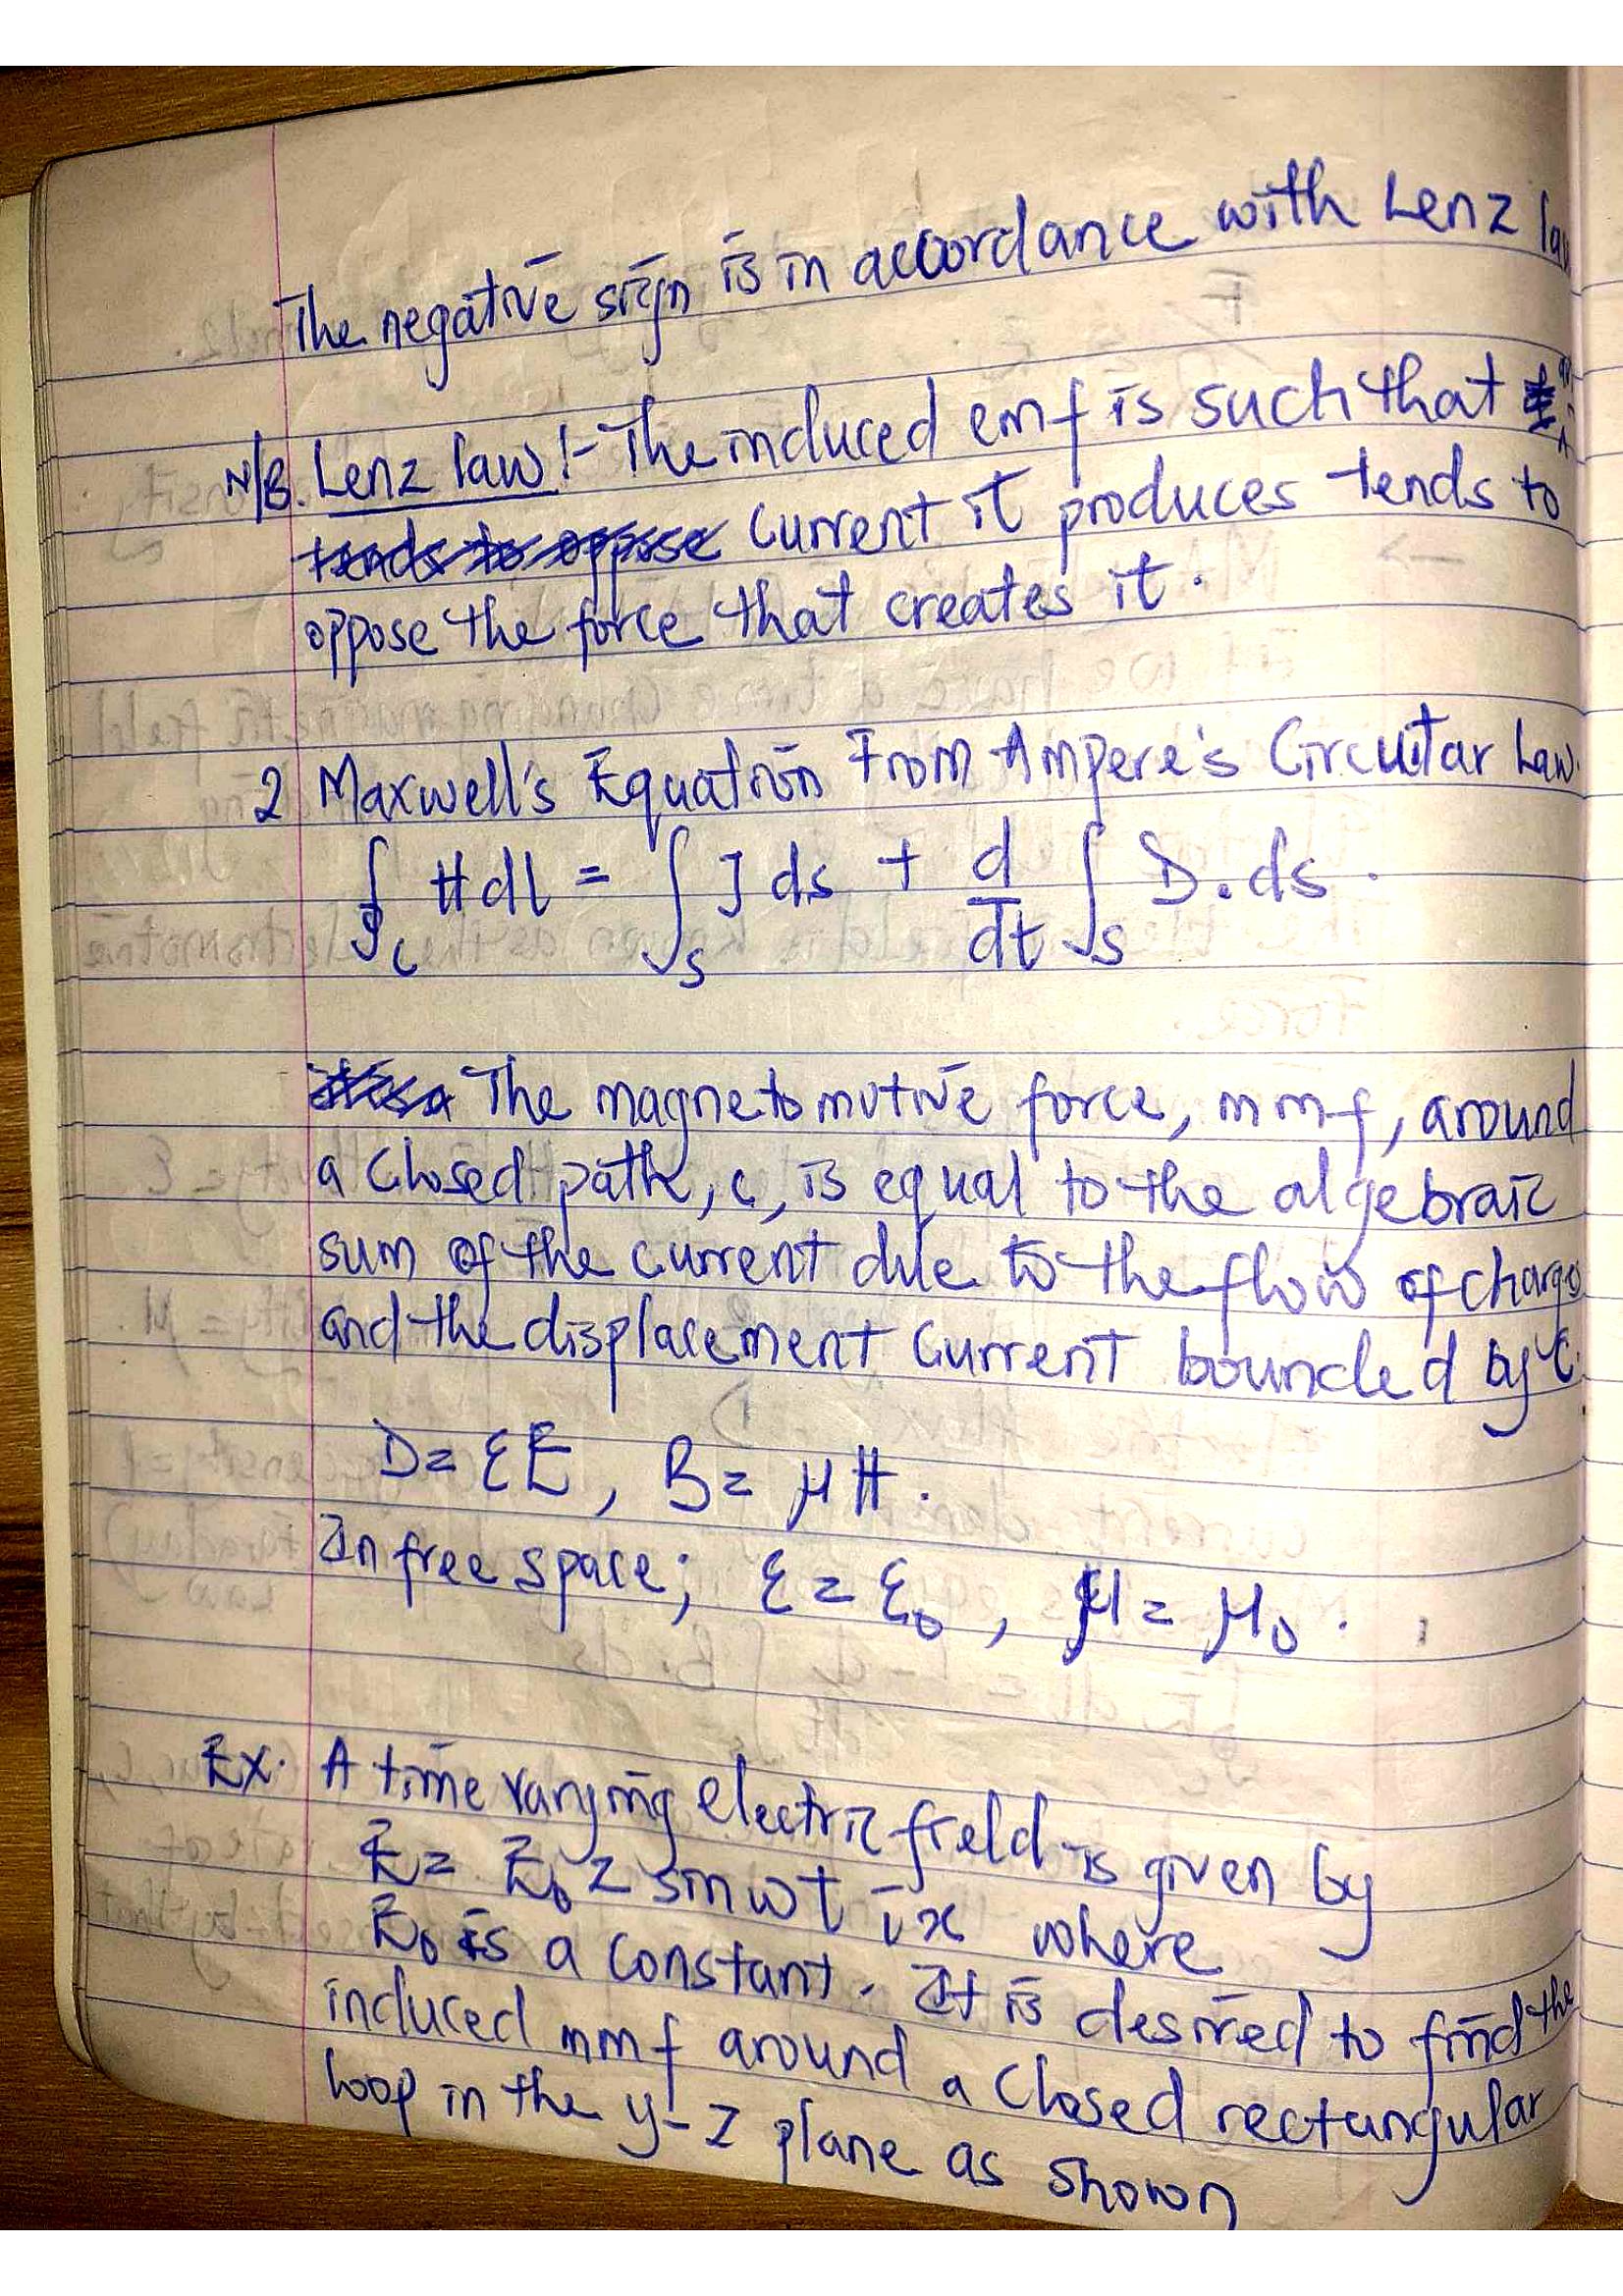 The negative sign is in accordance with Lenz law
N/B. Lenz law :- The induced emf is such that
current it produces tends to
oppose the force that creates it.
2 Maxwell's Equation From Ampere's Circuitar Law.
∮c H dl = ∫s J ds + d/dt ∫s D . ds .
The magnetomotive force, mmf, around
a closed path, c, is equal to the algebraic
sum of the current due to the flow of charges
and the displacement current bounded by C.
D = εE , B = μH .
In free space; ε = ε₀ , μ = μ₀ .
Ex. A time varying electric field is given by
E = E₀ z sin wt ix where
E₀ is a constant. It is desired to find the
induced mmf around a closed rectangular
loop in the y-z plane as shown